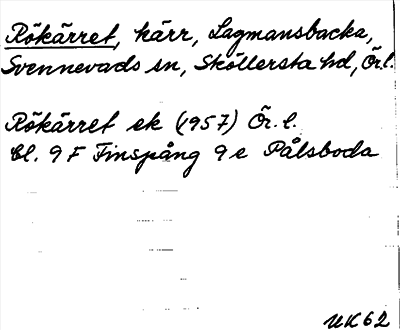 Rökärret, kärr, Lagmansbacka,
Svennevads sn, Sköllersta hd, Ör.l.
Rökärret ek (1957) Ör.l.
Bl. 9 F Finspång 9 e Pålsboda
UK62